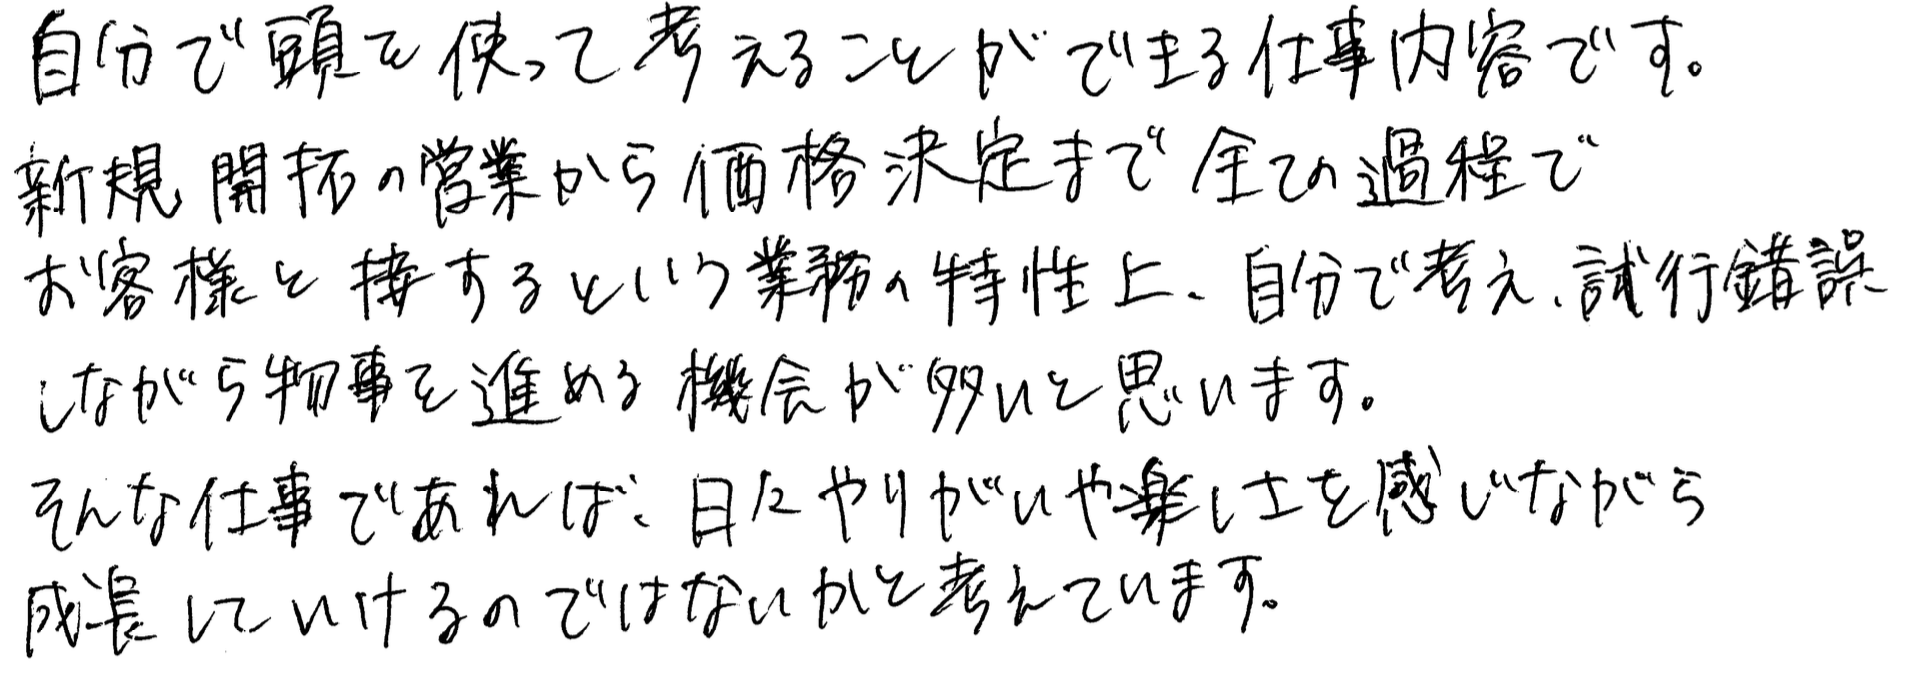 自分で頭を使って考えることができる仕事内容です。
新規開拓の営業から価格決定まで全ての過程で
お客様と接するという業務の特性上、自分で考え、試行錯誤
しながら物事を進める機会が多いと思います。
そんな仕事であれば、日々やりがいや楽しさを感じながら
成長していけるのではないかと考えています。